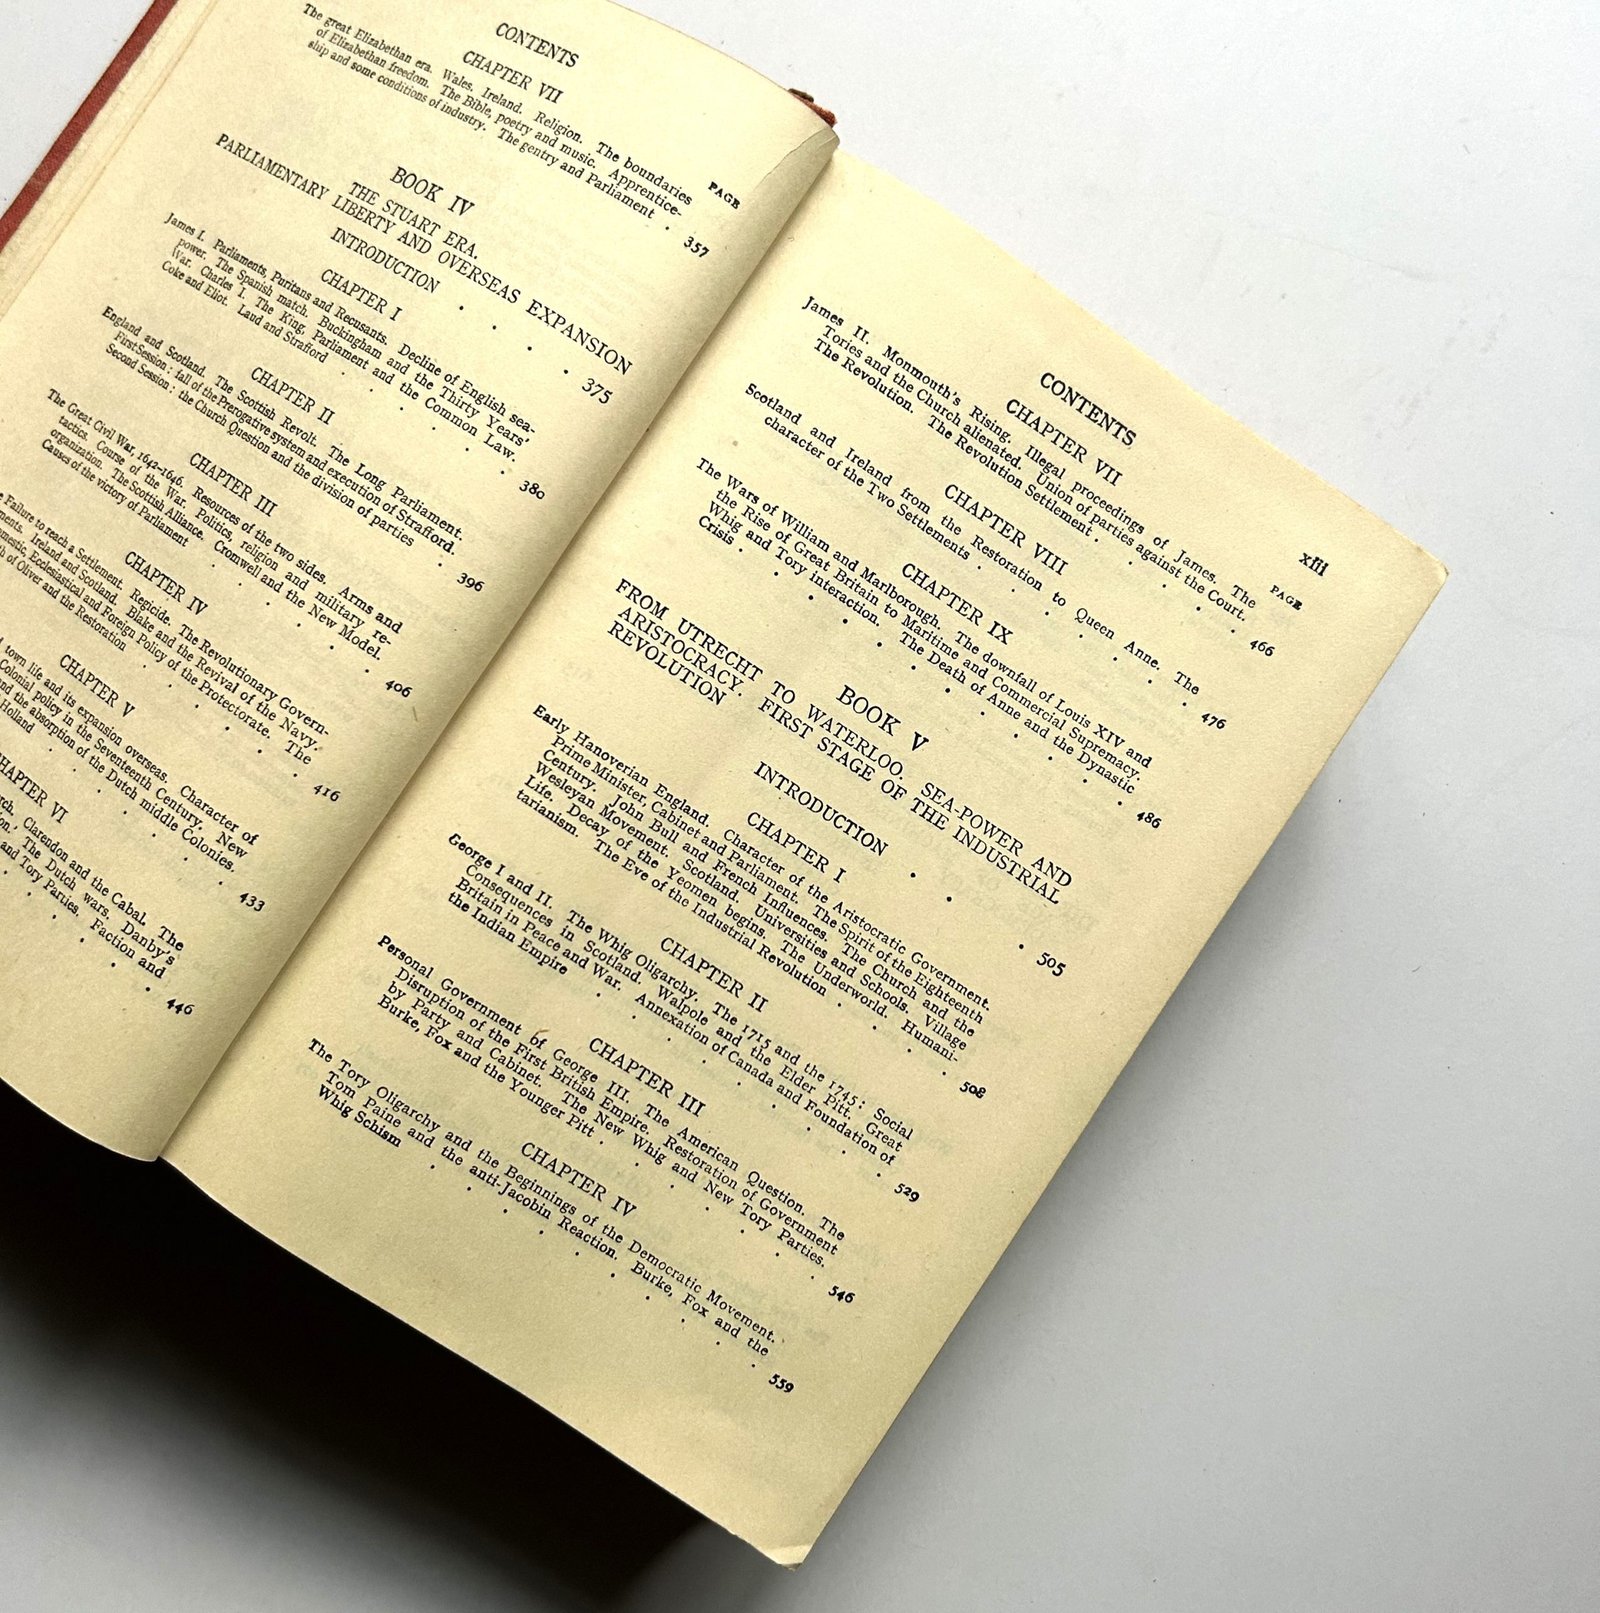 CONTENTS
CHAPTER VII
PAGE
The great Elizabethan era. Wales. Ireland. Religion. The boundaries
of Elizabethan freedom. The Bible, poetry and music. Apprentice-
ship and some conditions of industry. The gentry and Parliament . 357
BOOK IV
THE STUART ERA.
PARLIAMENTARY LIBERTY AND OVERSEAS EXPANSION
INTRODUCTION . . . . 375
CHAPTER I
James I. Parliaments, Puritans and Recusants. Decline of English sea-
power. The Spanish match. Buckingham and the Thirty Years'
War. Charles I. The King, Parliament and the Common Law.
Coke and Eliot. Laud and Strafford . . . . . . 380
CHAPTER II
England and Scotland. The Scottish Revolt. The Long Parliament.
First Session: fall of the Prerogative system and execution of Strafford.
Second Session: the Church Question and the division of parties . 396
CHAPTER III
The Great Civil War, 1642-1646. Resources of the two sides. Arms and
tactics. Course of the War. Politics, religion and military re-
organization. The Scottish Alliance. Cromwell and the New Model.
Causes of the victory of Parliament . . . . . 406
CHAPTER IV
Failure to reach a Settlement. Regicide. The Revolutionary Govern-
ments. Ireland and Scotland. Blake and the Revival of the Navy.
Domestic, Ecclesiastical and Foreign Policy of the Protectorate. The
of Oliver and the Restoration . . . . . . 416
CHAPTER V
town life and its expansion overseas. Character of
Colonial policy in the Seventeenth Century. New
and the absorption of the Dutch middle Colonies.
Holland . . . . . . . 433
CHAPTER VI
Clarendon and the Cabal. The
The Dutch wars. Danby's
and Tory Parties. Faction and
. . . . . 446
CONTENTS xiii
CHAPTER VII
PAGE
James II. Monmouth's Rising. Illegal proceedings of James. The
Tories and the Church alienated. Union of parties against the Court.
The Revolution. The Revolution Settlement . . . . . 466
CHAPTER VIII
Scotland and Ireland from the Restoration to Queen Anne. The
character of the Two Settlements . . . . . . 476
CHAPTER IX
The Wars of William and Marlborough. The downfall of Louis XIV and
the Rise of Great Britain to Maritime and Commercial Supremacy.
Whig and Tory interaction. The Death of Anne and the Dynastic
Crisis . . . . . . . . . . . . 486
BOOK V
FROM UTRECHT TO WATERLOO. SEA-POWER AND
ARISTOCRACY. FIRST STAGE OF THE INDUSTRIAL
REVOLUTION
INTRODUCTION . . . 505
CHAPTER I
Early Hanoverian England. Character of the Aristocratic Government.
Prime Minister, Cabinet and Parliament. The Spirit of the Eighteenth
Century. John Bull and French Influences. The Church and the
Wesleyan Movement. Scotland. Universities and Schools. Village
Life. Decay of the Yeomen begins. The Underworld. Humani-
tarianism. The Eve of the Industrial Revolution . . . . 508
CHAPTER II
George I and II. The Whig Oligarchy. The 1715 and the 1745: Social
Consequences in Scotland. Walpole and the Elder Pitt. Great
Britain in Peace and War. Annexation of Canada and Foundation of
the Indian Empire . . . . . . . . 529
CHAPTER III
Personal Government of George III. The American Question. The
Disruption of the First British Empire. Restoration of Government
by Party and Cabinet. The New Whig and New Tory Parties.
Burke, Fox and the Younger Pitt . . . . . . . 546
CHAPTER IV
The Tory Oligarchy and the Beginnings of the Democratic Movement.
Tom Paine and the anti-Jacobin Reaction. Burke, Fox and the
Whig Schism . . . . . . . . . . 559